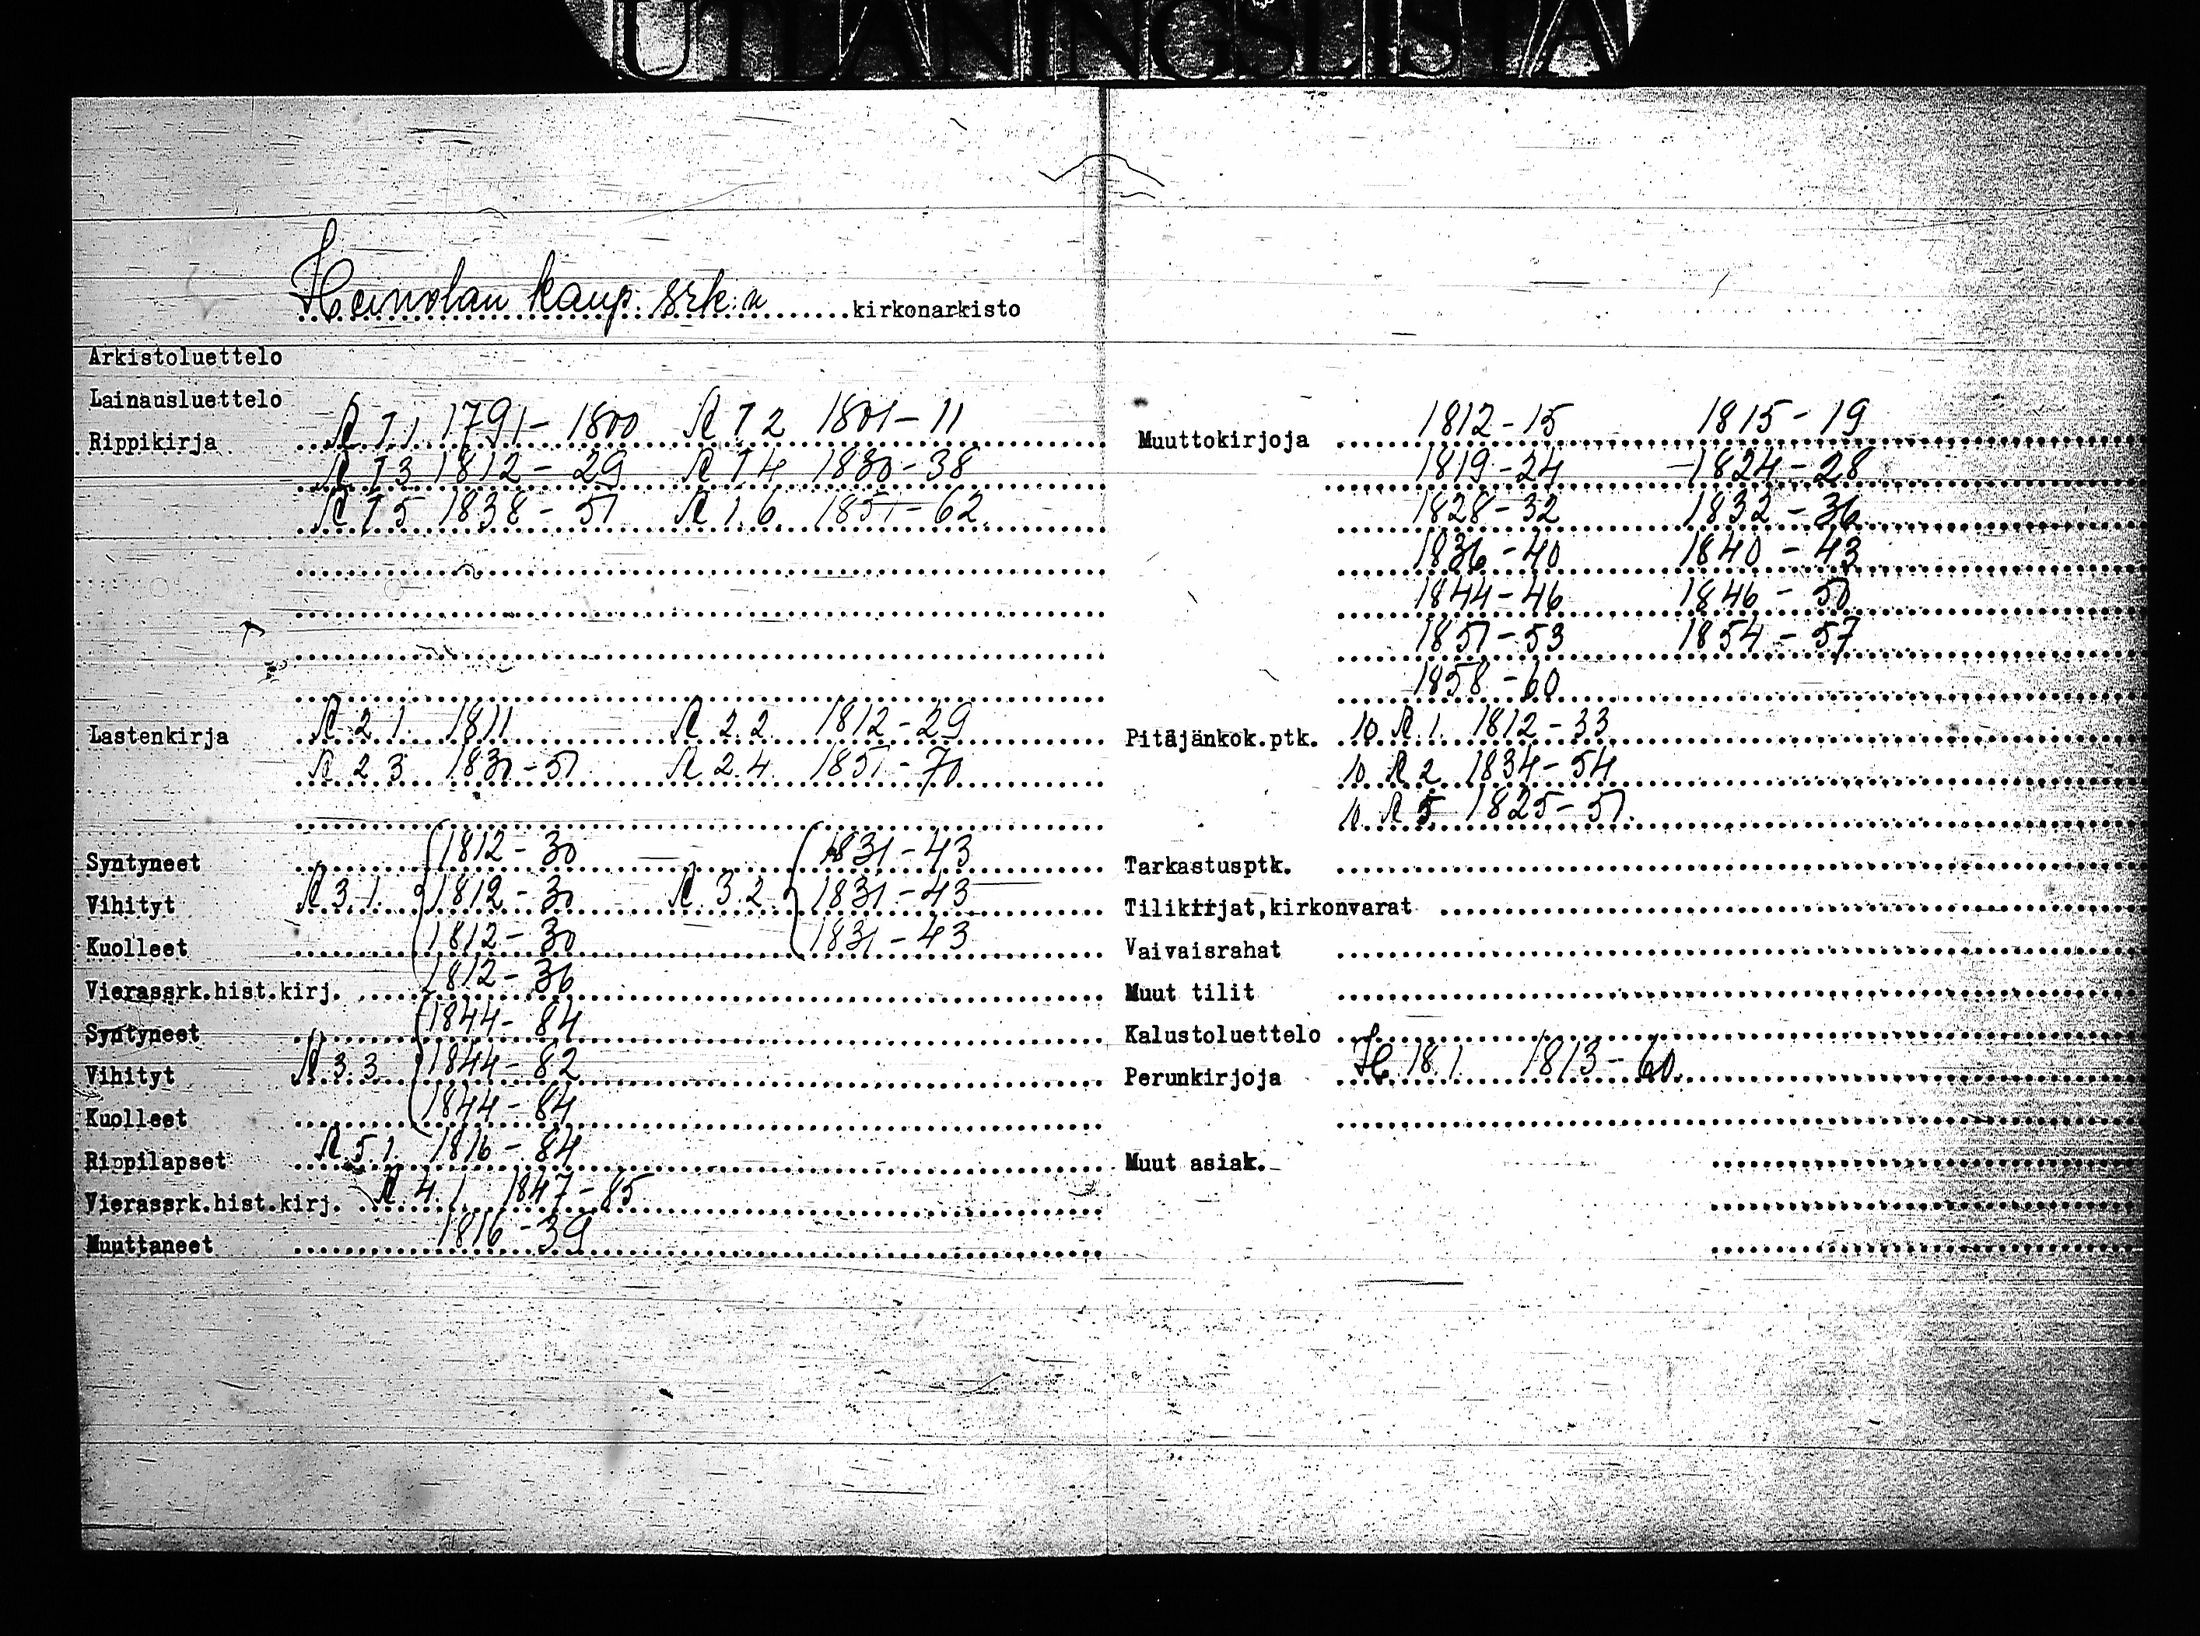 UTLÅNINGSLISTA
Heinolan kaup. srk:n kirkonarkisto
Arkistoluettelo
Lainausluettelo
Rippikirja A I 1 1791-1800 A I 2 1801-11
A I 3 1812-29 A I 4 1830-38
A I 5 1838-51 A I 6 1851-62
Lastenkirja A 2.1. 1811 A 2.2. 1812-29
A 2.3. 1831-51 A 2.4. 1851-70
Syntyneet 1812-30 1831-43
Vihityt A 3.1. 1812-30 A 3.2. 1831-43
Kuolleet 1812-30 1831-43
Vierassrk.hist.kirj. 1812-36
Syntyneet 1844-84
Vihityt A 3.3 1844-82
Kuolleet 1844-84
Rippilapset A.5.1. 1816-84
Vierassrk.hist.kirj. A.4.1 1847-85
Muuttaneet 1816-39
Muuttokirjoja 1812-15 1815-19
1819-24 1824-28
1828-32 1832-36
1836-40 1840-43
1844-46 1846-50
1851-53 1854-57
1858-60
Pitäjänkok.ptk. 10. A. 1. 1812-33
10. A 2 1834-54
10. A 5 1825-51.
Tarkastusptk.
Tilikirjat,kirkonvarat
Vaivaisrahat
Muut tilit
Kalustoluettelo
Perunkirjoja H. 18.1. 1813-60.
Muut asiak.